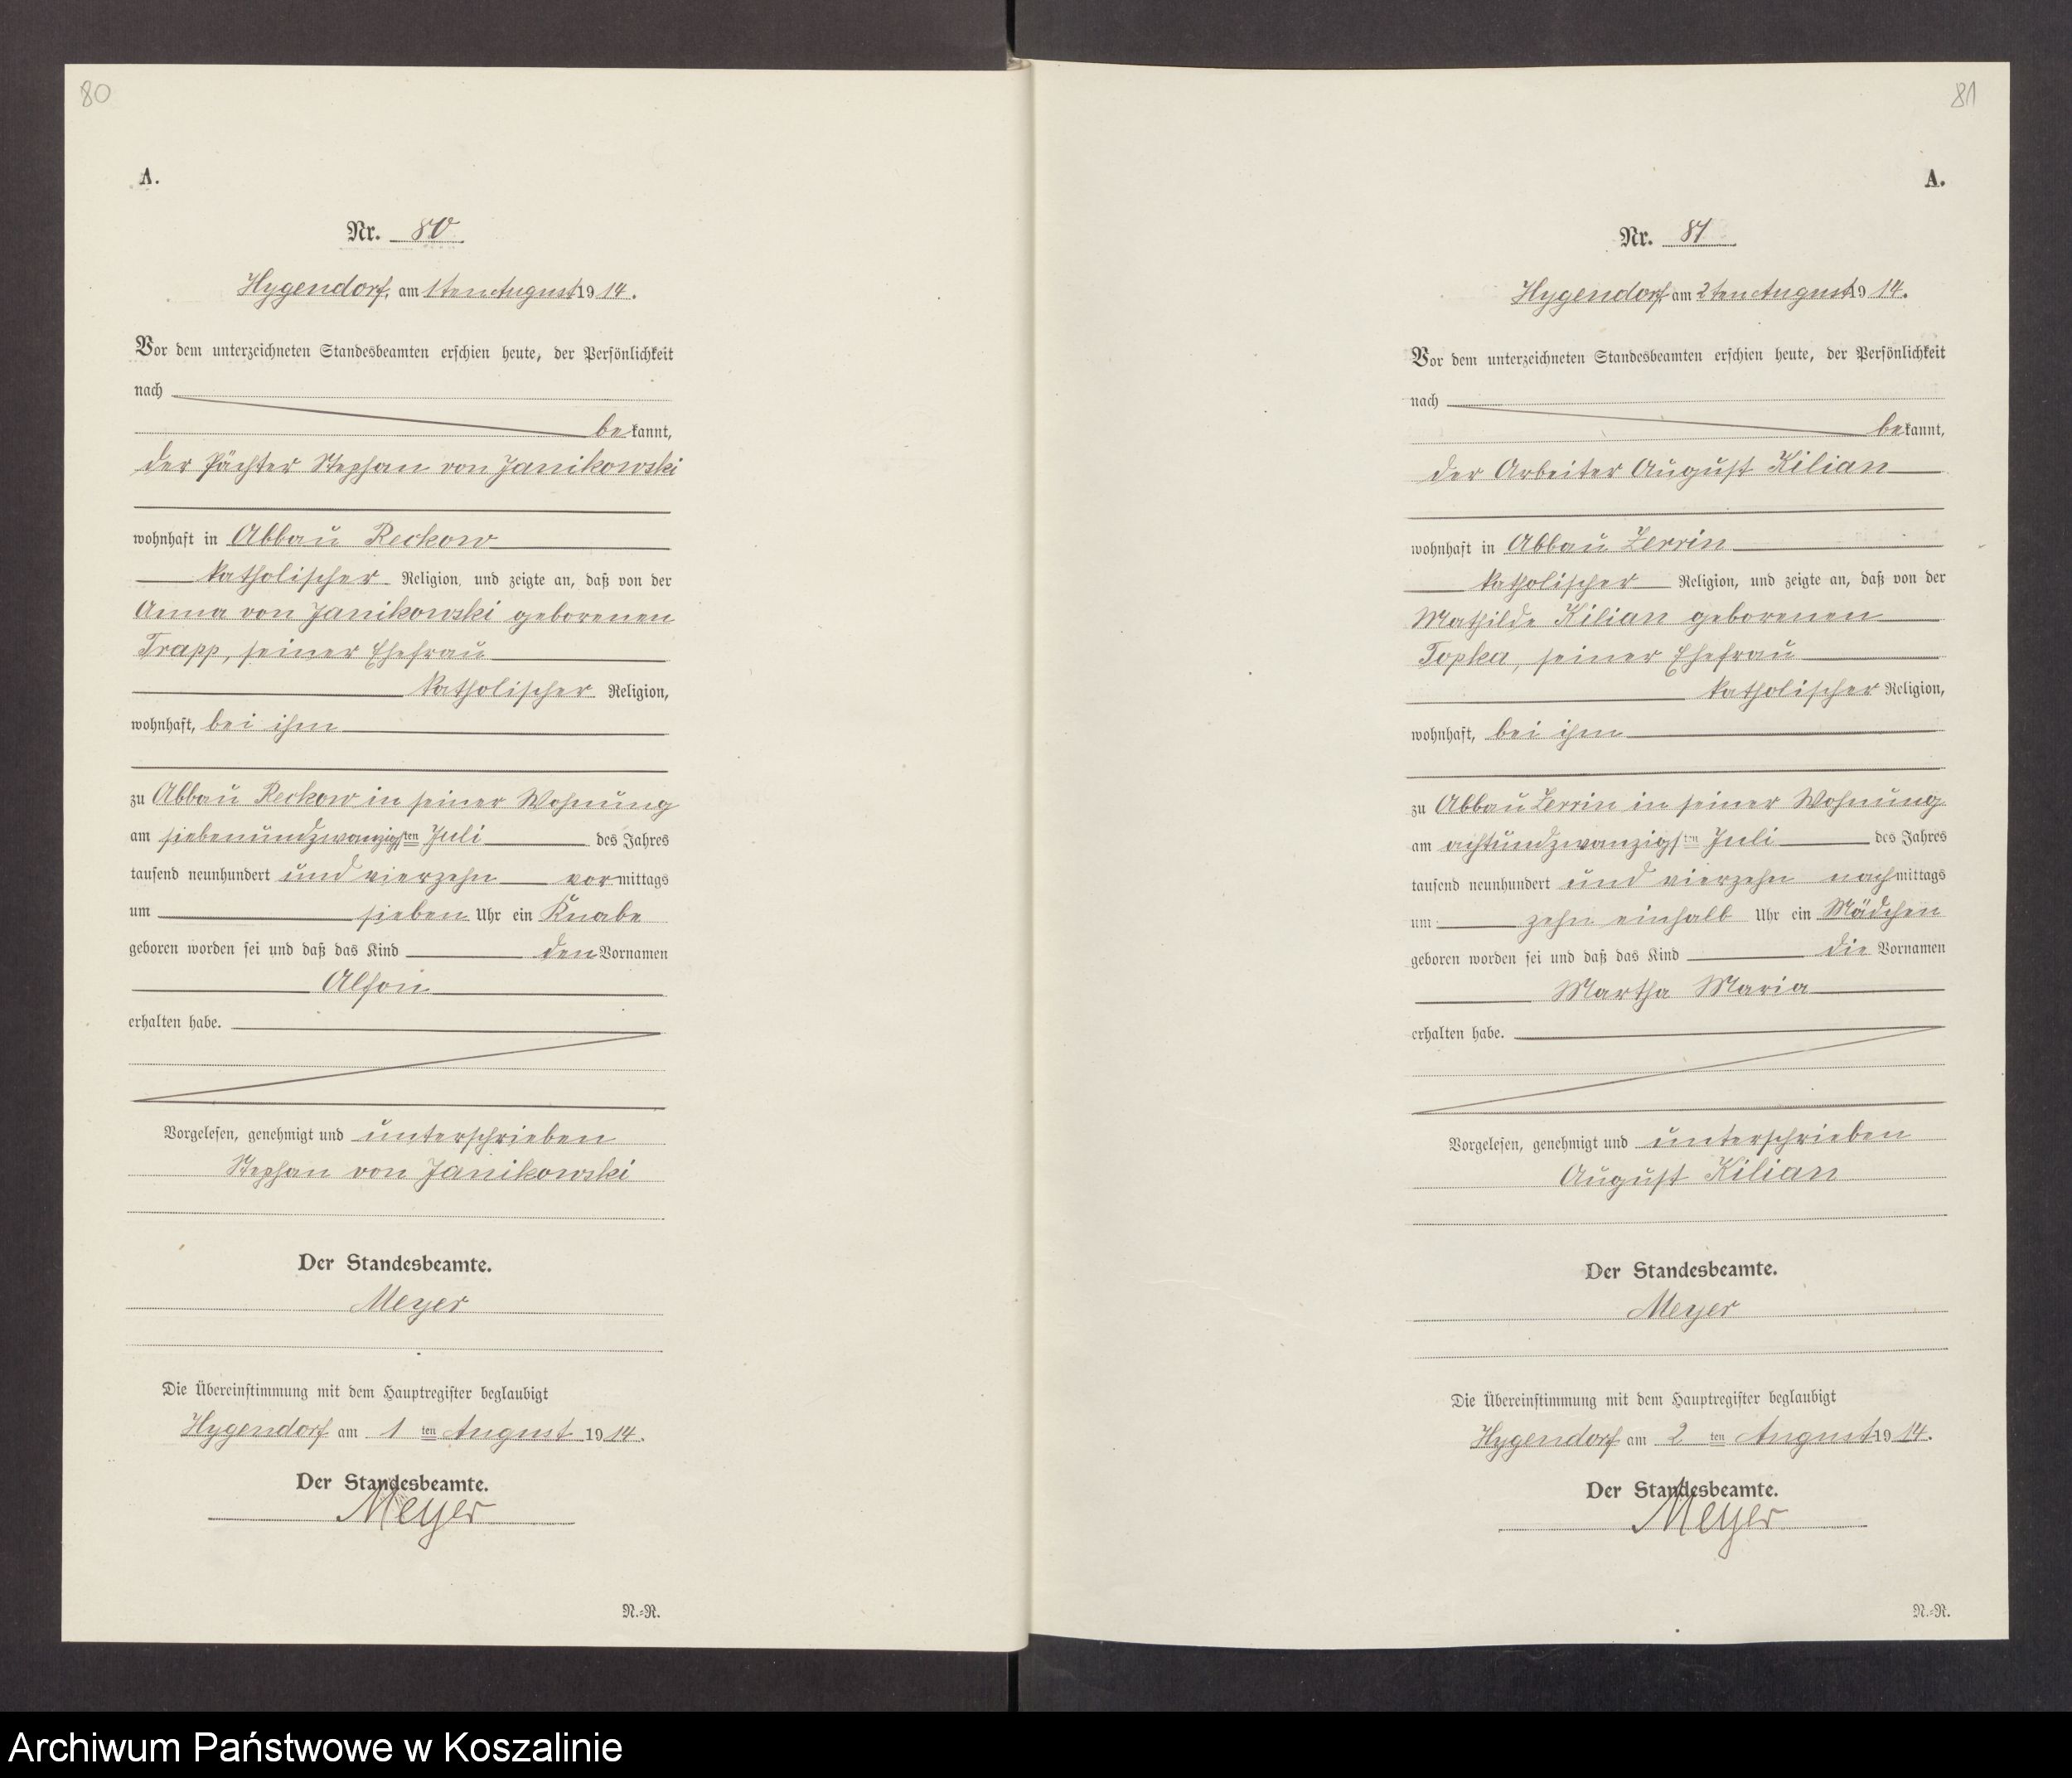 80
A.
Nr. 80
Hygendorf, am 1ten August 1914.
Vor dem unterzeichneten Standesbeamten erschien heute, der Persönlichkeit
nach
bekannt,
der Pächter Stephan von Janikowski
wohnhaft in Abbau Reckow
katholischer Religion, und zeigte an, daß von der
Anna von Janikowski geborenen
Trapp, seiner Ehefrau
katholischer Religion,
wohnhaft, bei ihm
zu Abbau Reckow in seiner Wohnung
am siebenundzwanzigsten Juli des Jahres
tausend neunhundert und vierzehn vormittags
um sieben Uhr ein Knabe
geboren worden sei und daß das Kind den Vornamen
Alfons
erhalten habe.
Vorgelesen, genehmigt und unterschrieben
Stephan von Janikowski
Der Standesbeamte.
Meyer
Die Übereinstimmung mit dem Hauptregister beglaubigt
Hygendorf am 1ten August 1914.
Der Standesbeamte.
Meyer
N.-R.
81
A.
Nr. 81
Hygendorf, am 2ten August 1914.
Vor dem unterzeichneten Standesbeamten erschien heute, der Persönlichkeit
nach
bekannt,
der Arbeiter August Kilian
wohnhaft in Abbau Zerrin
katholischer Religion, und zeigte an, daß von der
Mathilde Kilian geborenen
Topka, seiner Ehefrau
katholischer Religion,
wohnhaft, bei ihm
zu Abbau Zerrin in seiner Wohnung
am achtundzwanzigsten Juli des Jahres
tausend neunhundert und vierzehn nachmittags
um zehn einhalb Uhr ein Mädchen
geboren worden sei und daß das Kind die Vornamen
Martha Maria
erhalten habe.
Vorgelesen, genehmigt und unterschrieben
August Kilian
Der Standesbeamte.
Meyer
Die Übereinstimmung mit dem Hauptregister beglaubigt
Hygendorf am 2ten August 1914.
Der Standesbeamte.
Meyer
N.-R.
Archiwum Państwowe w Koszalinie